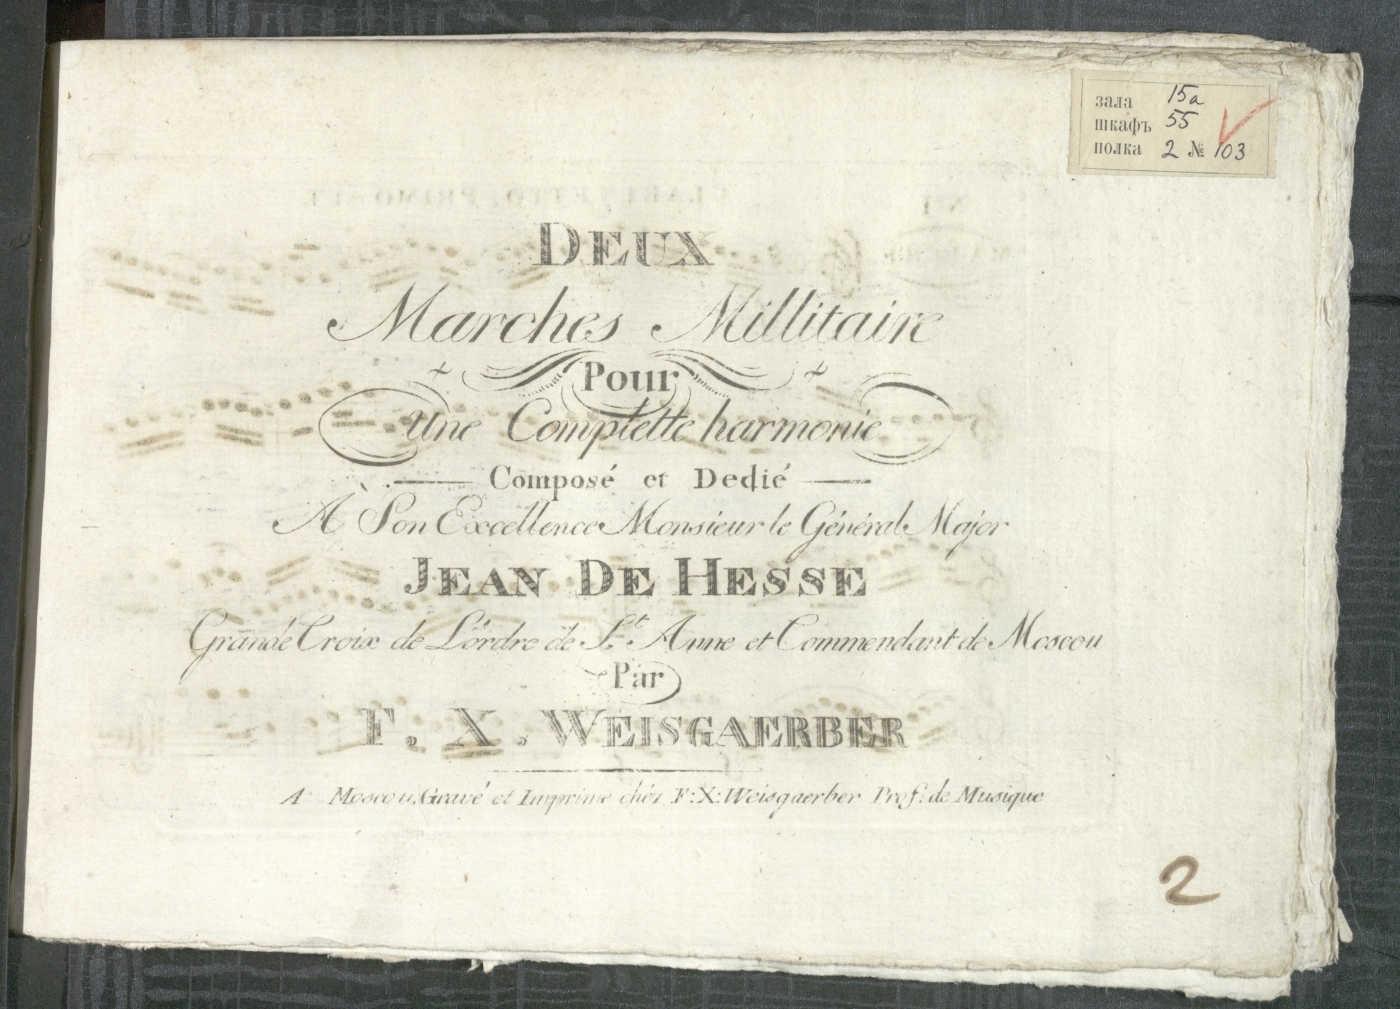 зала 15a
шкафъ 55
полка 2 № 103
DEUX
Marches Millitaire
Pour
Une Complette harmonie
Composé et Dedié
À Son Excellence Monsieur le Général Major
JEAN DE HESSE
Grande Croix de L'ordre de St. Anne et Commendant de Moscou
Par
F. X. WEISGAERBER
A Moscou, Gravé et Imprime chéz F: X: Weisgaerber Prof: de Musique
2